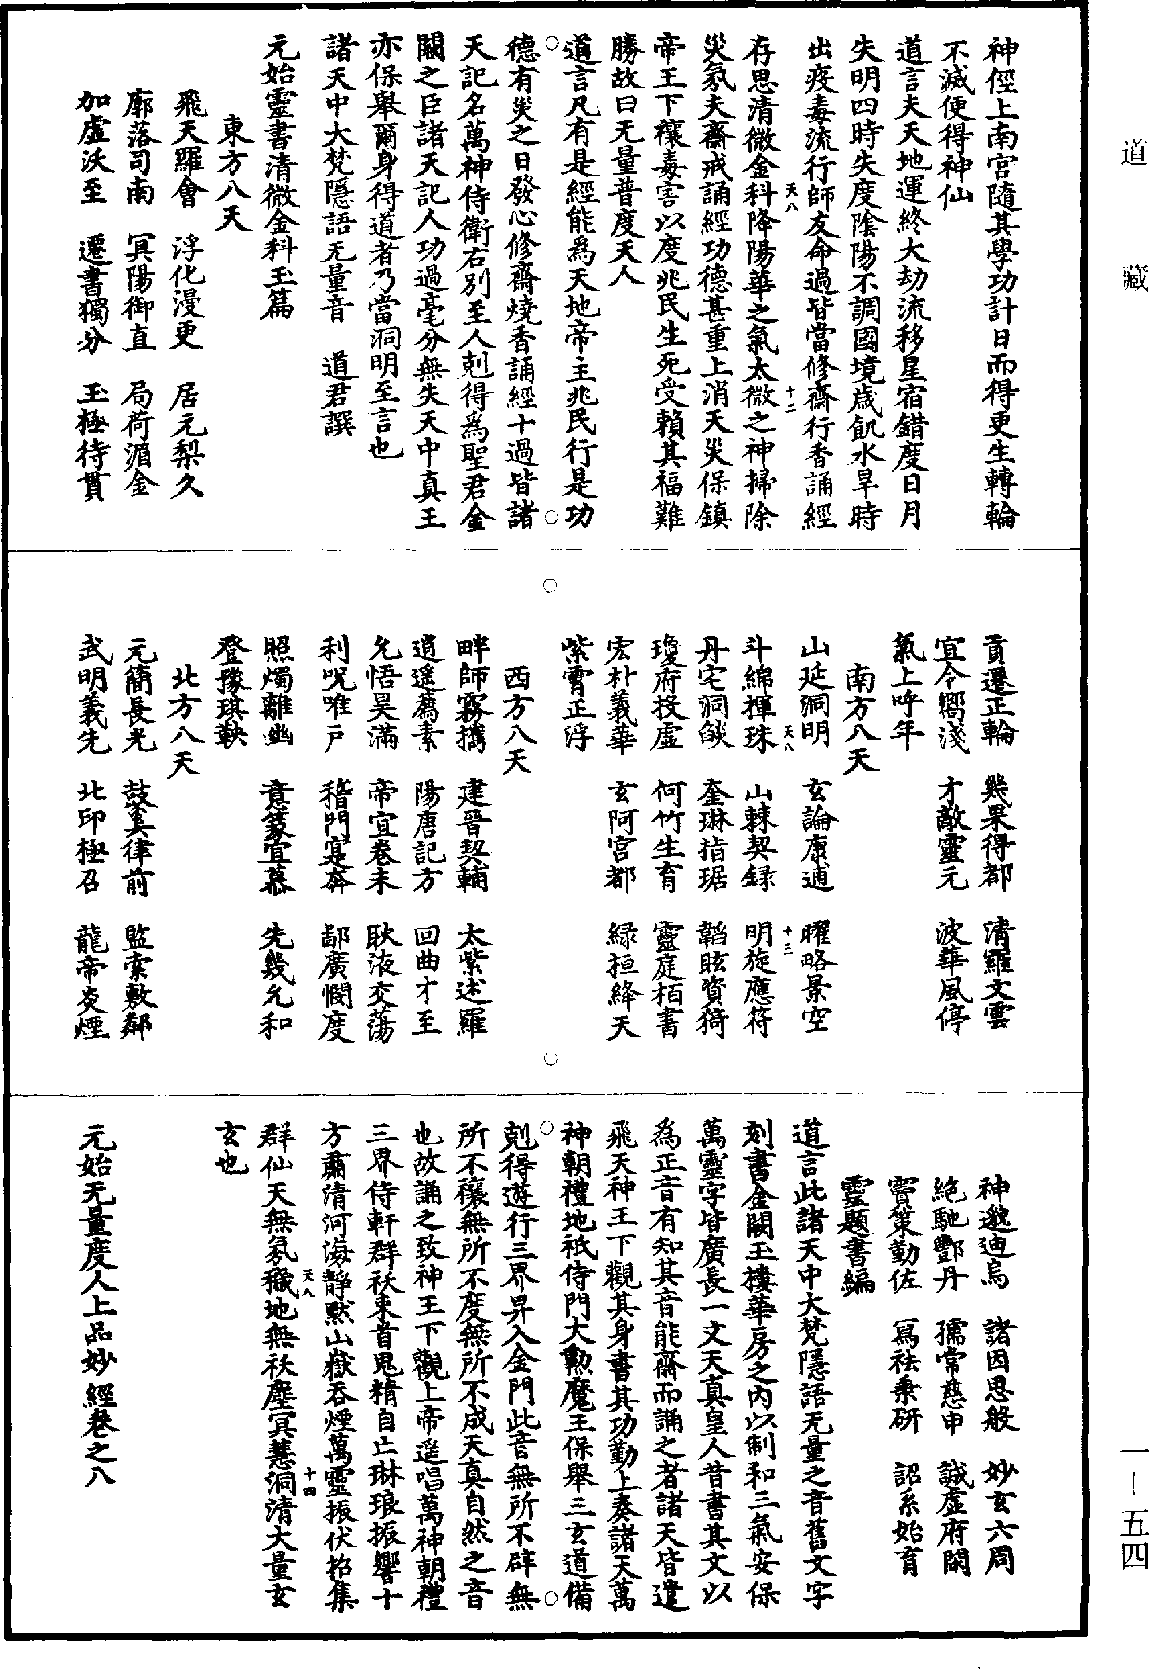 道藏
一—五四
神徑上南宮隨其學功計日而得更生轉輪
不滅便得神仙
道言夫天地運終大劫流移星宿錯度日月
失明四時失度陰陽不調國境歲飢水旱時
出疫毒流行師友命過皆當修齋行香誦經
天八
十二
存思清微金科降陽華之氣太微之神掃除
災氛夫齋戒誦經功德甚重上消天災保鎮
帝王下禳毒害以度兆民生死受賴其福難
勝故曰无量普度天人
道言凡有是經能為天地帝主兆民行是功
德有災之日發心修齋燒香誦經十過皆諸
天記名萬神侍衛右別至人剋得為聖君金
闕之臣諸天記人功過毫分無失天中真王
亦保舉爾身得道者乃當洞明至言也
諸天中大梵隱語无量音　道君譔
元始靈書清微金科玉篇
東方八天
飛天羅會　浮化漫更　居元梨久
廓落司南　冥陽御直　局荷湄金
加虛沃至　遷書獨分　玉極待貫
貢遷正輪　糕果得都　清羅文雲
宜令嚮淺　才敵靈元　波華風停
氣上呼年
南方八天
山延洞明　玄論康逋　曜略景空
天八
十三
斗綿揮珠　山棘契録　明旋應符
丹宅洞餤　奎琳指琚　韜眩資猗
瓊府投虛　何竹生育　靈庭栢書
宏朴義華　玄阿宮都　緑桓絳天
紫霄正浮
西方八天
畔師霧攜　建晉契輔　太紫述羅
逍遙薦素　陽唐記方　回曲才至
允悟昊滿　帝宜卷末　耿液交蕩
利呪唯戶　稽門寔奔　郚廣憫度
照燭離幽　意篆宣慕　先幾允和
登豫琪軮
北方八天
元簡長光　鼓奚律前　監索敷鄰
武明義先　北印極召　龍帝炎煙
神邈迪烏　諸因思般　妙玄六周
絕馳酆丹　孺常慈申　誠虛府閑
霄策勤佐　寫袪乗研　詔系始育
靈題書編
道言此諸天中大梵隱語无量之音舊文字
刻書金闕玉樓華房之內以制和三氣安保
萬靈字皆廣長一丈天真皇人昔書其文以
為正音有知其音能齋而誦之者諸天皆遣
飛天神王下觀其身書其功勤上奏諸天萬
神朝禮地祇侍門大勲魔王保舉三玄道備
剋得遊行三界昇入金門此音無所不辟無
所不穰無所不度無所不成天真自然之音
也故誦之致神王下觀上帝遥唱萬神朝禮
三界侍軒群袄束首鬼精自亡琳琅振響十
方肅清河海靜默山嶽吞煙萬靈振伏招集
天八
十四
群仙天無氛穢地無袄塵冥慧洞清大量玄
玄也
元始无量度人上品妙經卷之八